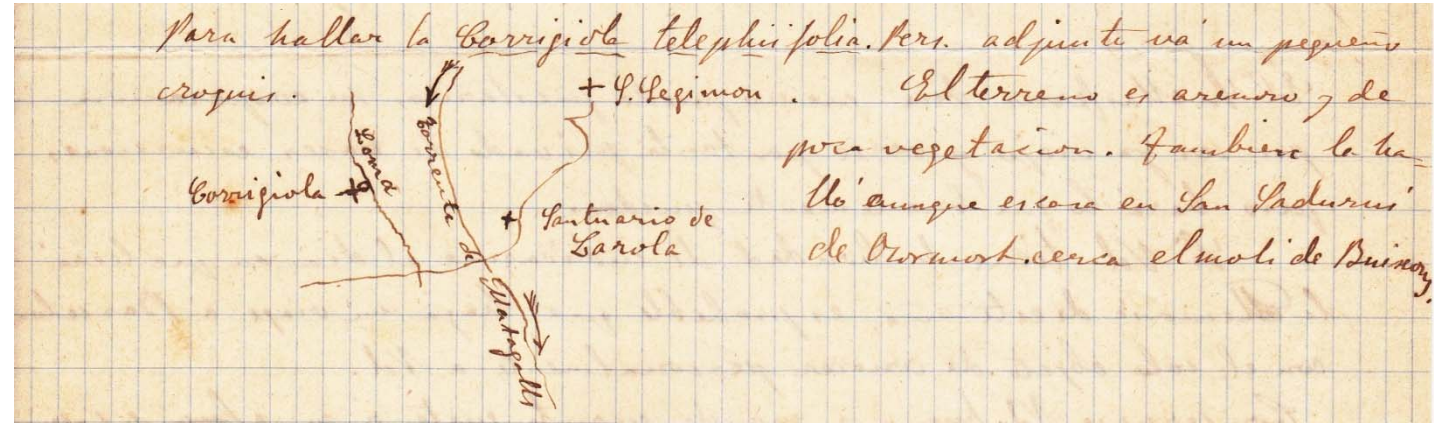 Para hallar la Corrigiola telephiifolia. Pers. adjunto vá un pequeño
croquis.
+ S. Segimon.
El terreno es arenoso y de
poca vegetacion. Tambien la ha=
lló aunque escasa en San Sadurní
de Osormort. cerca el moli de Buixons.
Corrigiola +
Loma
Torrente de Matagalls
+ Santuario de
Larola